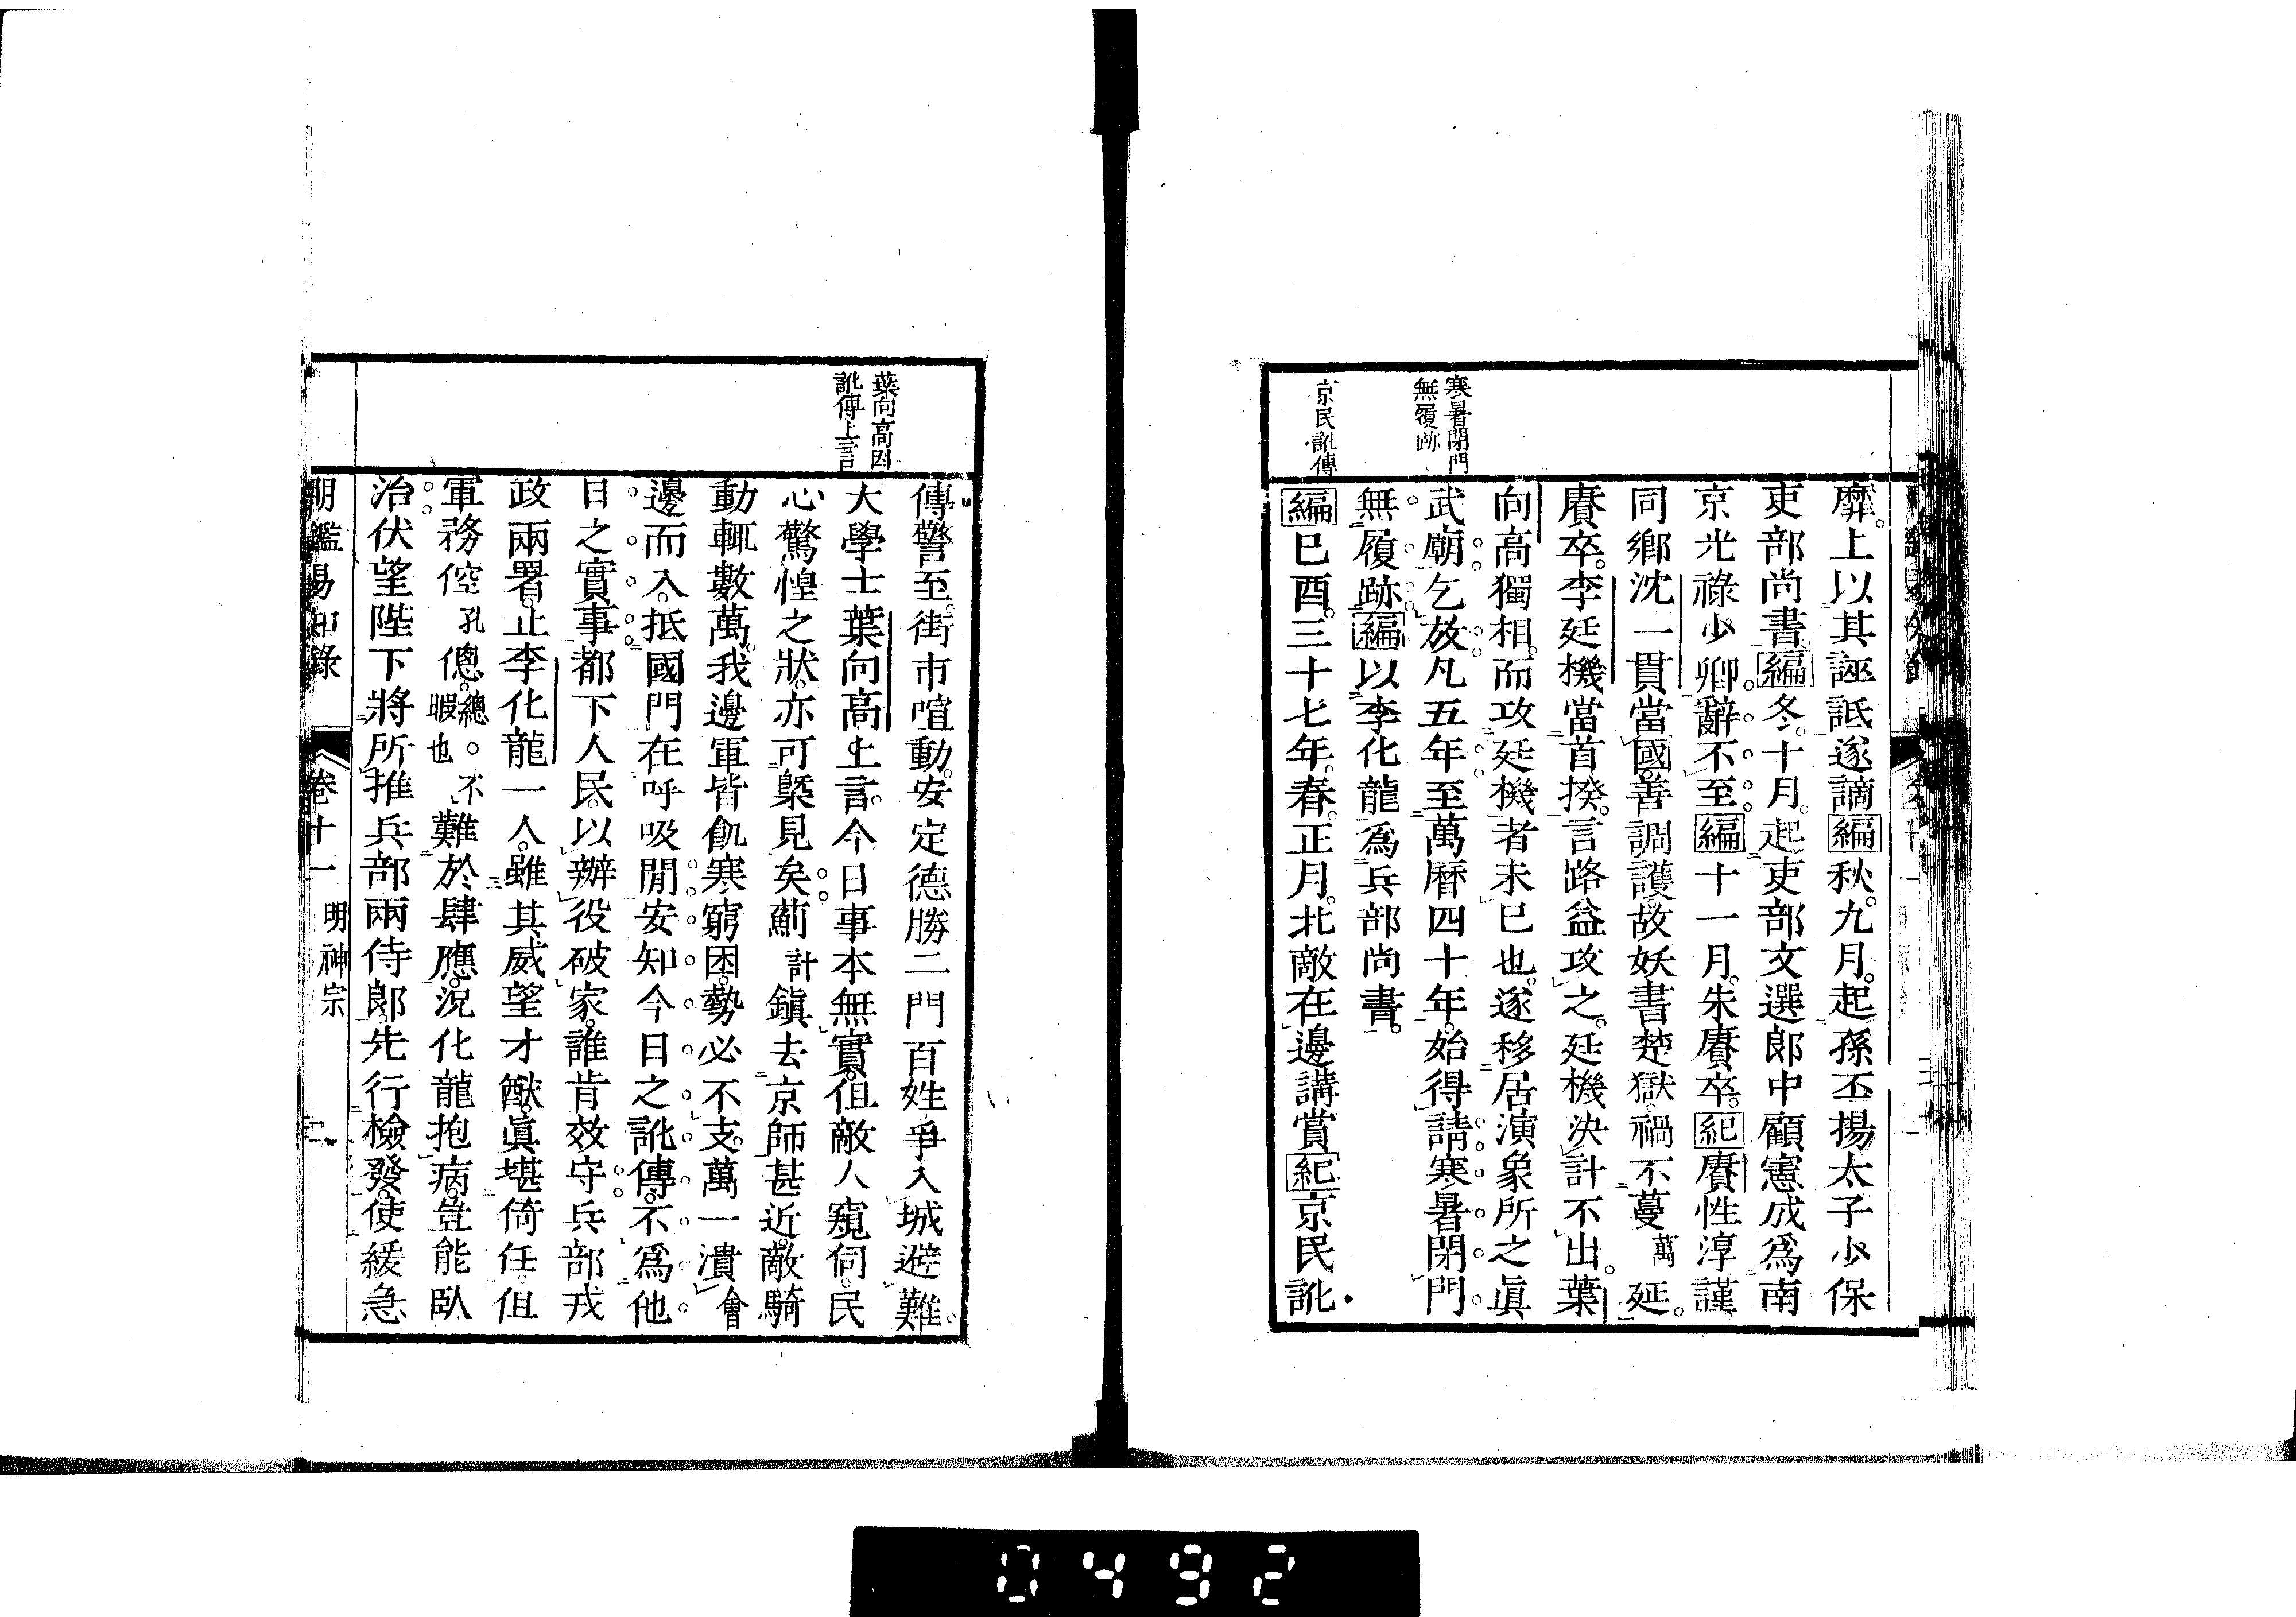 寒暑閉門
無履跡
京民訛傳
靡。上以其誣詆遂謫編秋。九月。起孫丕揚太子少保
吏部尚書。編冬。十月。起吏部文選郎中顧憲成爲南
京光祿少卿。辭不至。編十一月。朱賡卒。紀賡性淳謹、
同鄉沈一貫當國。善調護。故妖書楚獄。禍不蔓萬延。
賡卒。李延機當首揆。言路益攻之。延機決計不出。葉
向高獨相。而攻延機者未已也。遂移居演象所之眞
武廟。乞放。凡五年。至萬曆四十年。始得請。寒暑閉門
無履跡。編以李化龍爲兵部尚書。
編已酉。三十七年。春。正月。北敵在邊講賞紀京民訛
葉向高因
訛傳上言
傳警至。街市喧動。安定德勝二門百姓爭入城避難。
大學士葉向高上言。今日事本無實。但敵人窺伺。民
心驚惶之狀。亦可槩見矣。薊計鎭去京師甚近。敵騎
動輒數萬。我邊軍皆飢寒窮困。勢必不支。萬一潰會
邊而入。抵國門在呼吸閒。安知今日之訛傳。不爲他
日之實事。都下人民。以辦役破家。誰肯效守。兵部戎
政兩署。止李化龍一人。雖其威望才猷。眞堪倚任。但
軍務倥孔偬。總。不暇也難於肆應。況化龍抱病。豈能臥
治。伏望陛下將所推兵部兩侍郎。先行檢發。使緩急
明鑑易知錄 卷十一 明神宗
0492